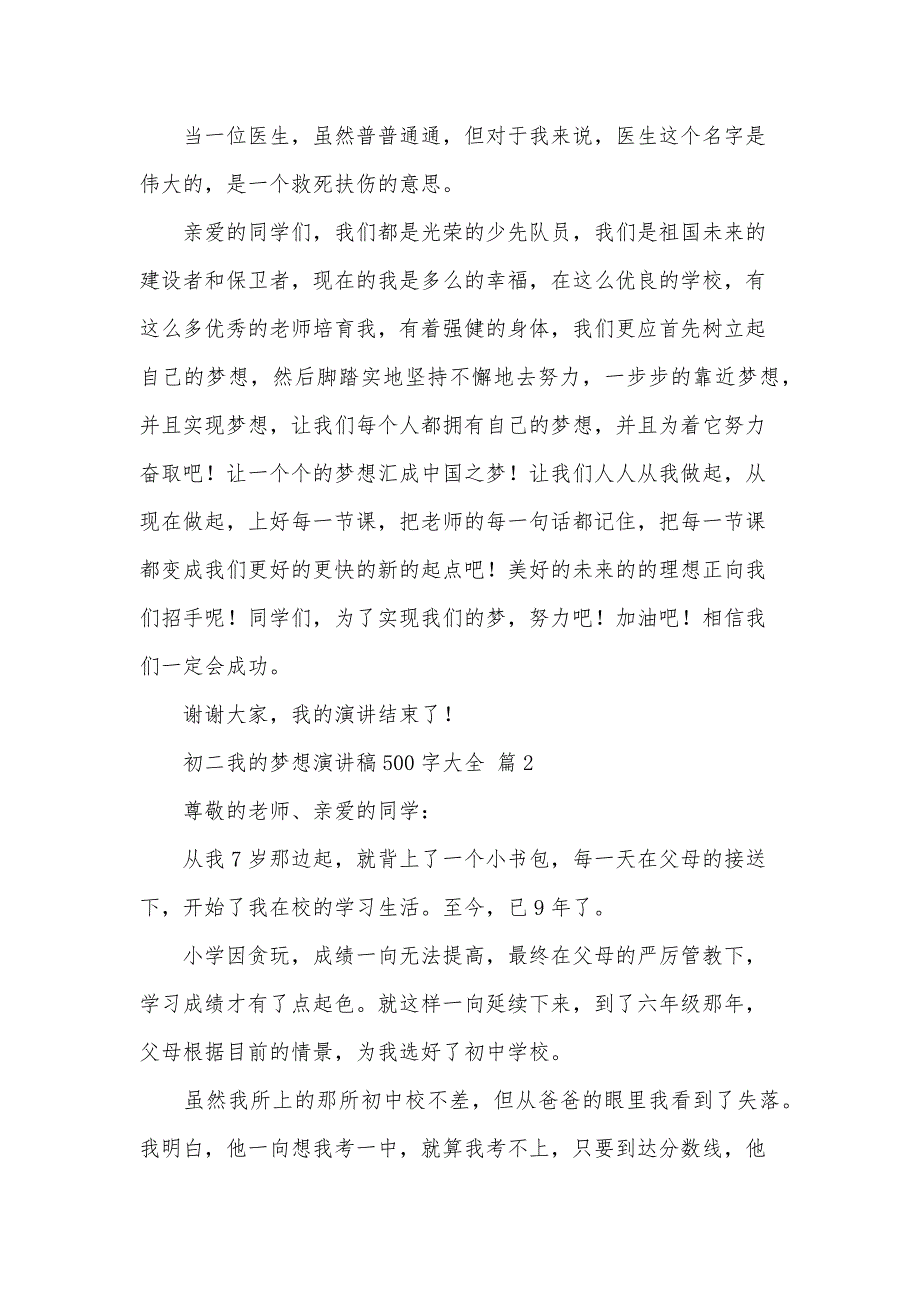 当一位医生，虽然普普通通，但对于我来说，医生这个名字是
伟大的，是一个救死扶伤的意思。
亲爱的同学们，我们都是光荣的少先队员，我们是祖国未来的
建设者和保卫者，现在的我是多么的幸福，在这么优良的学校，有
这么多优秀的老师培育我，有着强健的身体，我们更应首先树立起
自己的梦想，然后脚踏实地坚持不懈地去努力，一步步的靠近梦想，
并且实现梦想，让我们每个人都拥有自己的梦想，并且为着它努力
奋取吧！让一个个的梦想汇成中国之梦！让我们人人从我做起，从
现在做起，上好每一节课，把老师的每一句话都记住，把每一节课
都变成我们更好的更快的新的起点吧！美好的未来的的理想正向我
们招手呢！同学们，为了实现我们的梦，努力吧！加油吧！相信我
们一定会成功。
谢谢大家，我的演讲结束了！
初二我的梦想演讲稿500字大全 篇2
尊敬的老师、亲爱的同学：
从我7岁那边起，就背上了一个小书包，每一天在父母的接送
下，开始了我在校的学习生活。至今，已9年了。
小学因贪玩，成绩一向无法提高，最终在父母的严厉管教下，
学习成绩才有了点起色。就这样一向延续下来，到了六年级那年，
父母根据目前的情景，为我选好了初中学校。
虽然我所上的那所初中校不差，但从爸爸的眼里我看到了失落。
我明白，他一向想我考一中，就算我考不上，只要到达分数线，他